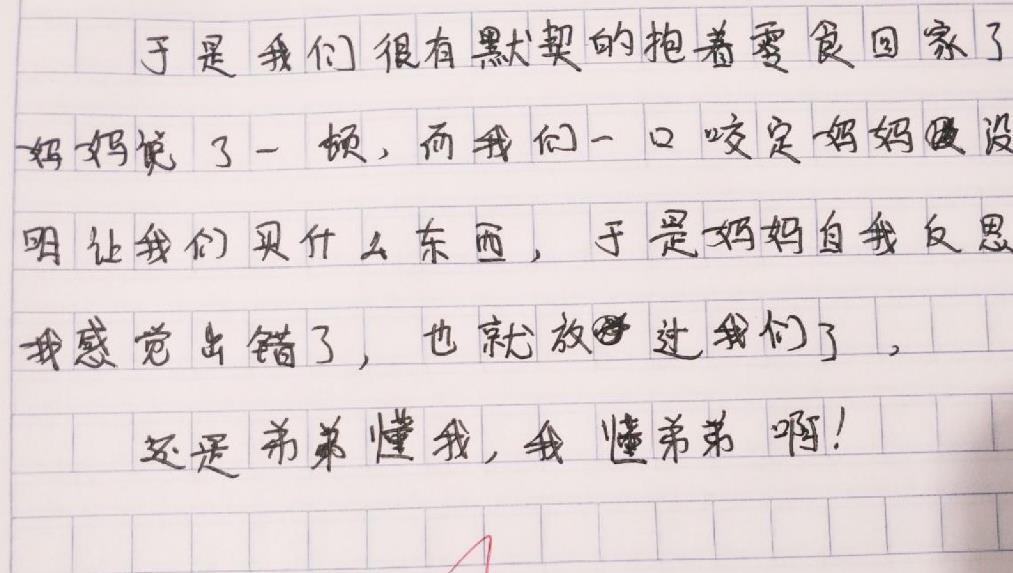 于是我们很有默契的抱着零食回家了
妈妈说了一顿，而我们一口咬定妈妈没
明让我们买什么东西，于是妈妈自我反思
我感觉出错了，也就放过我们了，
还是弟弟懂我，我懂弟弟啊！